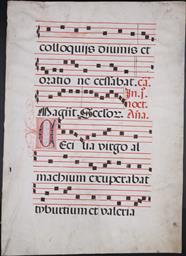 colloquijs diuinis et
oratio ne cessabat. ca.
In .ij.
noct.
Magnīf. Seclor. Ana.
Ceci lia virgo al
machium exuperabat
tyburtium et valeria